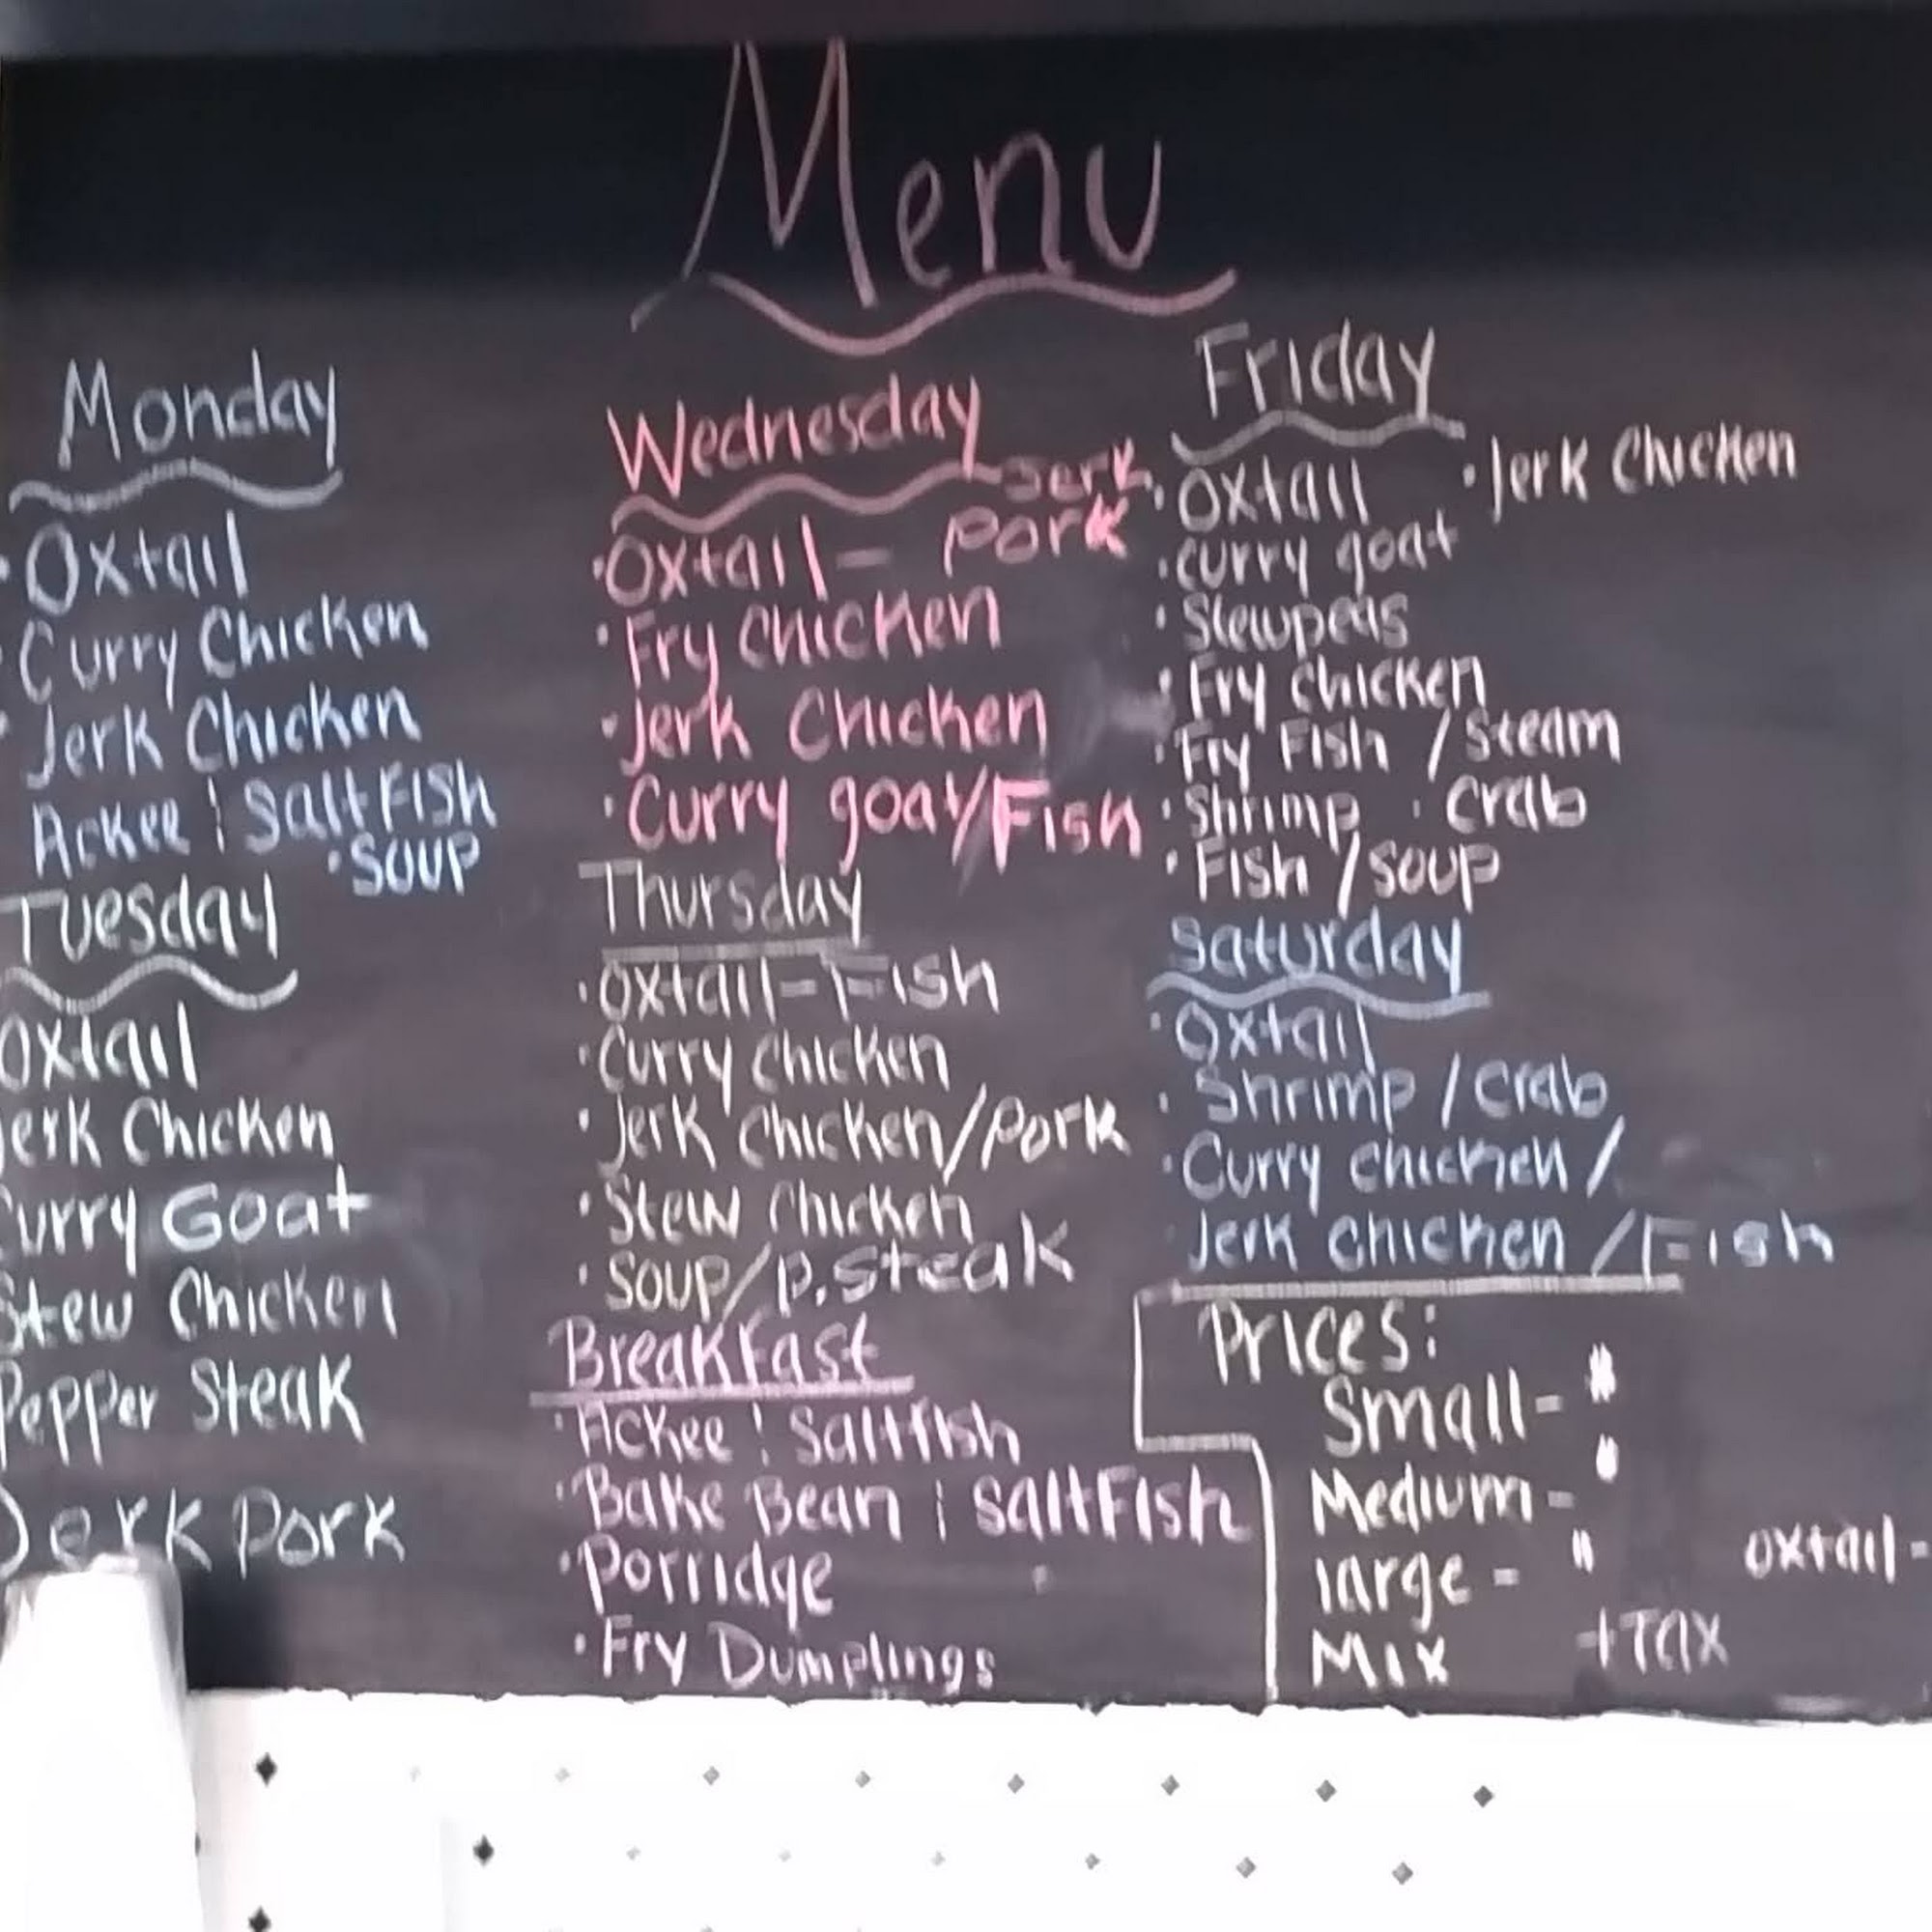 Menu
Monday
• Oxtail
• Curry Chicken
• Jerk Chicken
Ackee | SaltFish
• Soup
Tuesday
Oxtail
Jerk Chicken
Curry Goat
Stew Chicken
Pepper Steak
Jerk Pork
Wednesday
Jerk
• Oxtail - Pork
• Fry Chicken
• Jerk Chicken
• Curry goat/Fish
Thursday
• Oxtail - Fish
• Curry Chicken
• Jerk Chicken/Pork
• Stew Chicken
• Soup/P.Steak
Breakfast
• Ackee | Saltfish
• Bake Bean | SaltFish
• Porridge
• Fry Dumplings
Friday
• Oxtail • Jerk Chicken
• Curry goat
• Stewpeas
• Fry Chicken
• Fry Fish / Steam
• Shrimp • Crab
• Fish / Soup
Saturday
• Oxtail
• Shrimp / Crab
• Curry Chicken /
Jerk Chicken / Fish
Prices:
Small -
Medium -
large - oxtail -
Mix +Tax